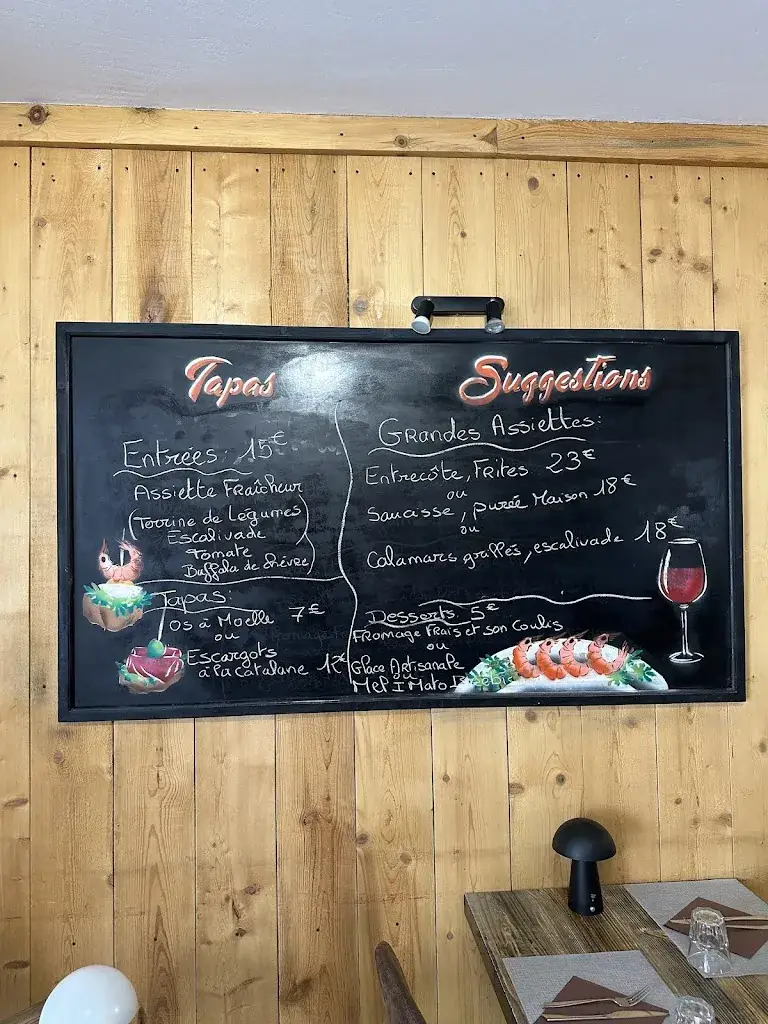 Tapas
Entrées: 15€
Assiette Fraîcheur
(Terrine de Légumes
Escalivade
Tomate
Buffala de chèvre)
Tapas:
Os à Moelle 7€
ou
Escargots
à la catalane 12€
Suggestions
Grandes Assiettes:
Entrecôte, Frites 23€
ou
Saucisse, purée Maison 18€
ou
Calamars grillés, escalivade 18€
Desserts 5€
Fromage Frais et son Coulis
ou
Glace Artisanale
ou
Mel I Mato Brebis